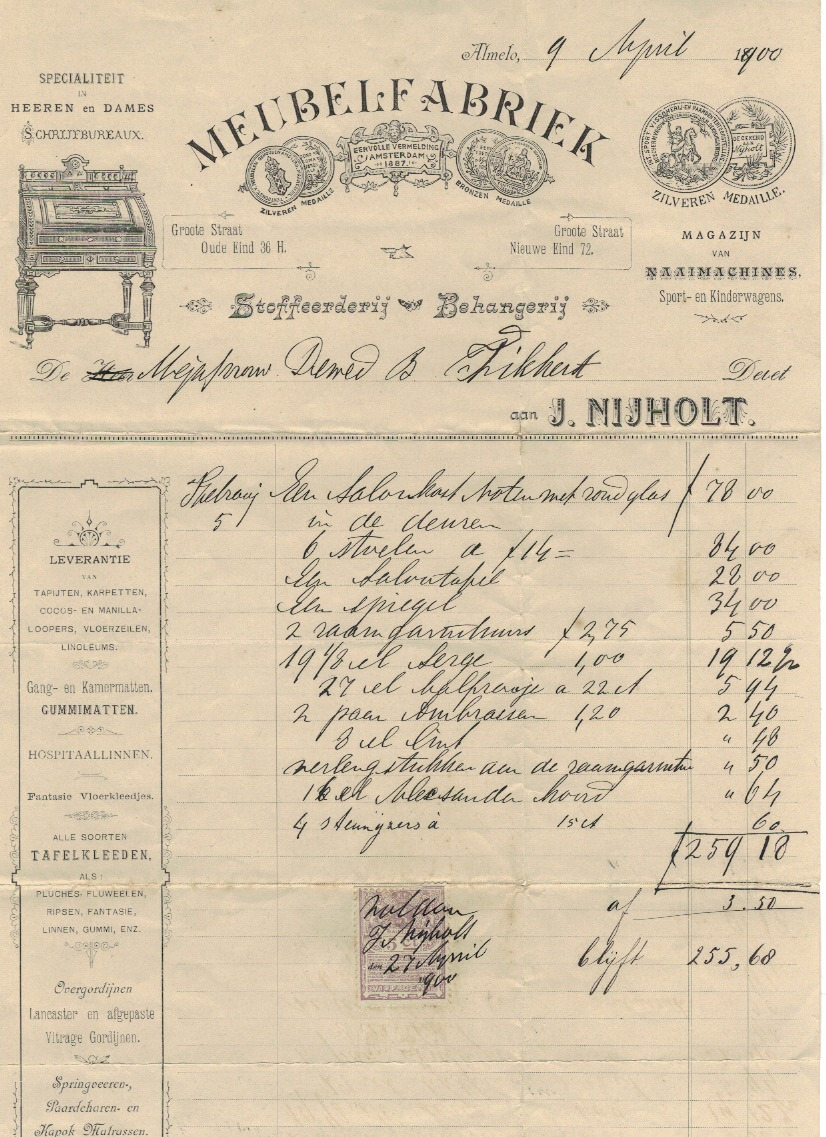 Almelo, 9 April 1900
SPECIALITEIT
IN
HEEREN en DAMES
SCHRIJFBUREAUX.
MEUBELFABRIEK
EERVOLLE VERMELDING
AMSTERDAM
1887.
ZILVEREN MEDAILLE
BRONZEN MEDAILLE
ZILVEREN MEDAILLE.
Groote Straat
Oude Eind 36 H.
Groote Straat
Nieuwe Eind 72.
MAGAZIJN
VAN
NAAIMACHINES,
Sport- en Kinderwagens.
Stoffeerderij Behangerij
De Heer Mejufrouw Dewed B Fikkert Debet
aan J. NIJHOLT.
5 Een Salonkast Noten met rond glas f 78 00
in de deuren
6 stoelen a f 14 = 84 00
Een Salontafel 28 00
een spiegel 34 00
2 raamgarnituurs f 2,75 5 50
19 1/8 el Serge 1,00 19 12
27 el a 22 ct 5 94
2 paar Ambrassen 1,20 2 40
3 el lint " 48
verlengstukken aan de raamgarnituur " 50
16 el Alecsander koord " 64
4 à 15 ct 60
f 259 18
af 3.50
blijft 255,68
voldaan
J. Nijholt
den 27 April
1900
LEVERANTIE
VAN
TAPIJTEN, KARPETTEN,
COCOS- EN MANILLA-
LOOPERS, VLOERZEILEN,
LINOLEUMS.
Gang- en Kamermatten.
GUMMIMATTEN.
HOSPITAALLINNEN.
Fantasie Vloerkleedjes.
ALLE SOORTEN
TAFELKLEEDEN,
ALS:
PLUCHES, FLUWEELEN,
RIPSEN, FANTASIE,
LINNEN, GUMMI, ENZ.
Overgordijnen
Lancaster en afgepaste
Vitrage Gordijnen.
Springveeren-,
Paardeharen- en
Kapok Matrassen.